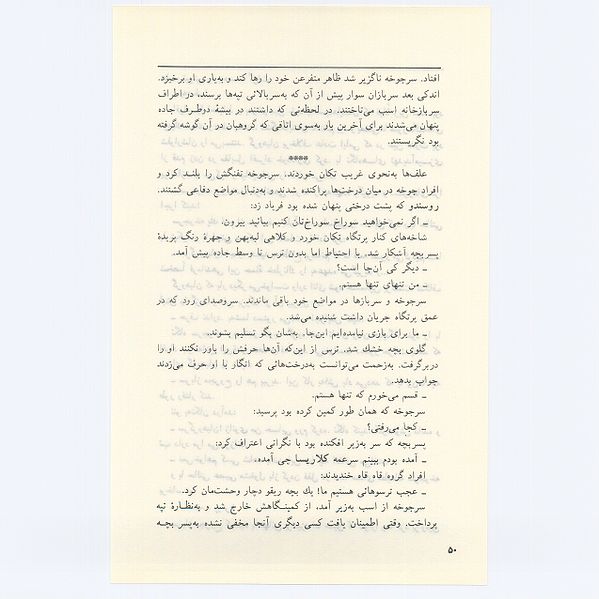 افتاد. سرجوخه ناگزیر شد ظاهر متفرعن خود را رها کند و به‌یاری او برخیزد.
اندکی بعد سربازان سوار پیش از آن که به‌سربالائی تپه‌ها برسند، در اطراف
سربازخانه اسب می‌تاختند. در لحظه‌ئی که داشتند در بیشهٔ دوطرف جاده
پنهان می‌شدند برای آخرین بار به‌سوی اتاقی که گروهبان در آن گوشه گرفته
بود نگریستند.
****
علف‌ها به‌نحوی غریب تکان خوردند. سرجوخه تفنگش را بلند کرد و
افراد جوخه در میان درخت‌ها پراکنده شدند و به‌دنبال مواضع دفاعی گشتند.
روستدو که پشت درختی پنهان شده بود فریاد زد:
ـ اگر نمی‌خواهید سوراخ سوراخ‌تان کنیم بیائید بیرون.
شاخه‌های کنار پرتگاه تکان خورد و کلاهی لبه‌پهن و چهرهٔ رنگ پریدهٔ
پسربچه آشکار شد. با احتیاط اما بدون ترس تا وسط جاده پیش آمد.
ـ دیگر کی آن‌جا است؟
ـ من تنهای تنها هستم.
سرجوخه و سربازها در مواضع خود باقی ماندند. سروصدای رود که در
عمق پرتگاه جریان داشت شنیده می‌شد.
ـ ما برای بازی نیامده‌ایم این‌جا. به‌شان بگو تسلیم بشوند.
گلوی بچه خشك شد. ترس از این‌که آن‌ها حرفش را باور نکنند او را
دربرگرفت. به‌زحمت می‌توانست به‌درخت‌هائی که انگار با او حرف می‌زدند
جواب بدهد.
ـ قسم می‌خورم که تنها هستم.
سرجوخه که همان طور کمین کرده بود پرسید:
ـ کجا می‌رفتی؟
پسربچه که سر به‌زیر افکنده بود با نگرانی اعتراف کرد:
ـ آمده بودم ببینم سرعمه کلاریسا چی آمده.
افراد گروه قاه قاه خندیدند:
ـ عجب ترسوهائی هستیم ما! یك بچه ریقو دچار وحشت‌مان کرد.
سرجوخه از اسب به‌زیر آمد، از کمینگاهش خارج شد و به‌نظارهٔ تپه
پرداخت. وقتی اطمینان یافت کسی دیگری آنجا مخفی نشده به‌پسر بچه
۵۰